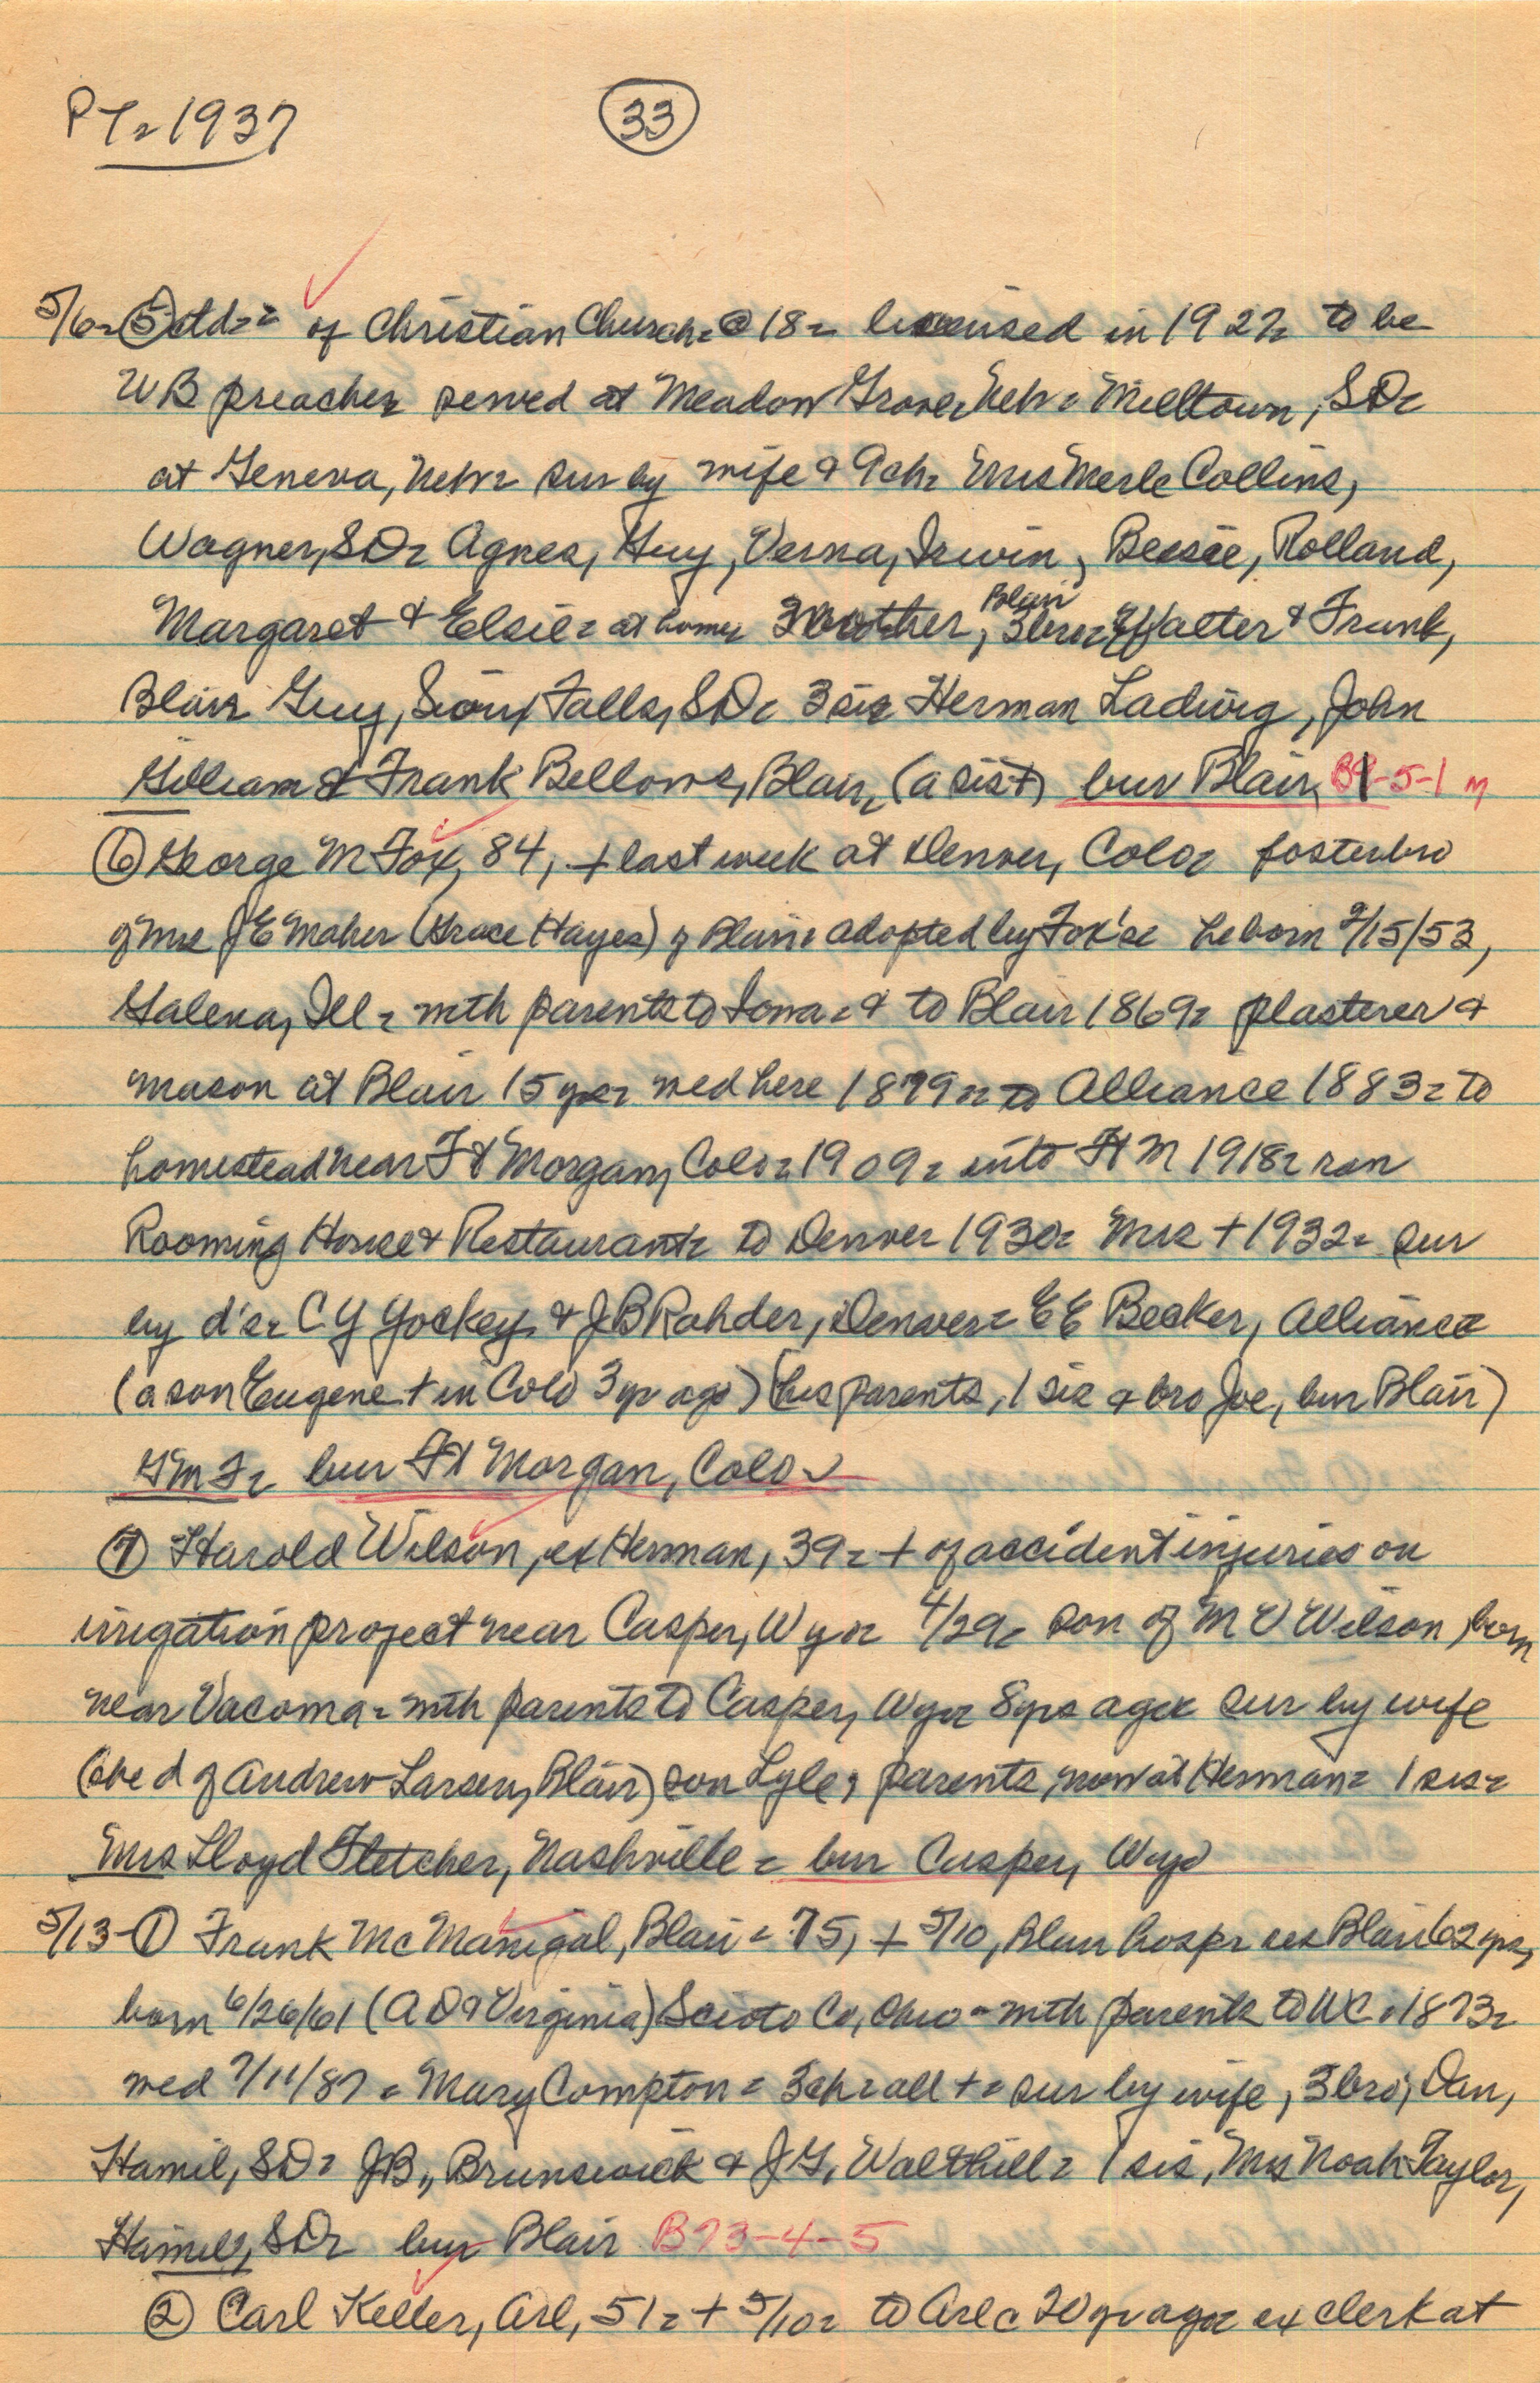 PT= 1937
33
5/6= 5 add= of Christian Church= @ 18= licensed in 1922= to be
UB preacher served at Meadow Grove, Neb= Milltown, SD=
at Geneva, Nebr= sur by wife & 9 ch= Mrs Merle Collins,
Wagner, SD= Agnes, Guy, Verna, Irwin, Bessie, Rolland,
Margaret & Elsie= at home= mother, Blair 3 bro= Walter & Frank,
Blair= Guy, Sioux Falls, SD= 3 sis= Herman Ladwig, John
Gilliam & Frank Bellows, Blair, (a sis +) bur Blair, -5-1 m
6 George M Fox, 84, + last week at Denver, Colo= foster bro
of Mrs J E Maher (Grace Hayes) of Blair= adopted by Fox's= he born 2/15/53,
Galena, Ill= with parents to Iowa= & to Blair 1869= plasterer &
mason at Blair 15 yrs= wed here 1879= to Alliance 1883= to
homestead near Ft Morgan, Colo= 1909= into Ft M 1918= ran
Rooming House & Restaurant= to Denver 1930= Mrs + 1932= sur
by d's= C Y Yockey & J B Rahder, Denver= E E Becker, Alliance
(a son Eugene + in Colo 3 yr ago) (his parents, 1 sis & bro Joe, bur Blair)
GMF= bur Ft Morgan, Colo
7 Harold Wilson, ex Herman, 39= + of accident injuries on
irrigation project near Casper, Wyo= 4/29= son of M V Wilson, born
near Vacoma= with parents to Casper, Wyo= 8 yrs ago= sur by wife
(she d of Andrew Larsen, Blair) son Lyle, parents, now at Herman= 1 sis=
Mrs Lloyd Fletcher, Nashville= bur Casper, Wyo
5/13- 1 Frank McManigal, Blair= 75, + 5/10, Blair hosp= res Blair 62 yrs,
born 6/26/61 (A D & Virginia) Scioto Co, Ohio= with parents to WC= 1873=
wed 7/11/87= Mary Compton= 3 ch= all += sur by wife, 3 bro, Dan,
Hamil, SD= JB, Brunswick & J G, Walthill= 1 sis, Mrs Noah Taylor,
Hamil, SD= bur Blair B73-4-5
2 Carl Keller, Arl, 51= + 5/10= to Arl= 20 yr ago= ex clerk at